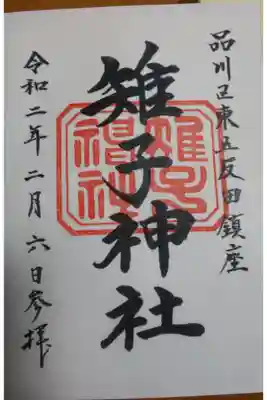 品川区東五反田鎮座
雉子神社
雉子
神社
令和二年二月六日参拝